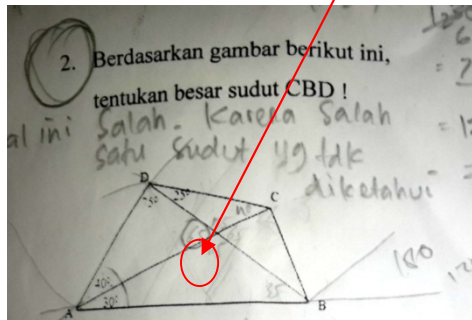 2. Berdasarkan gambar berikut ini,
tentukan besar sudut CBD !
al ini Salah. Karena Salah
satu sudut yg tdk
diketahui
D
75° 25°
C
40°
30°
A
35
B
180